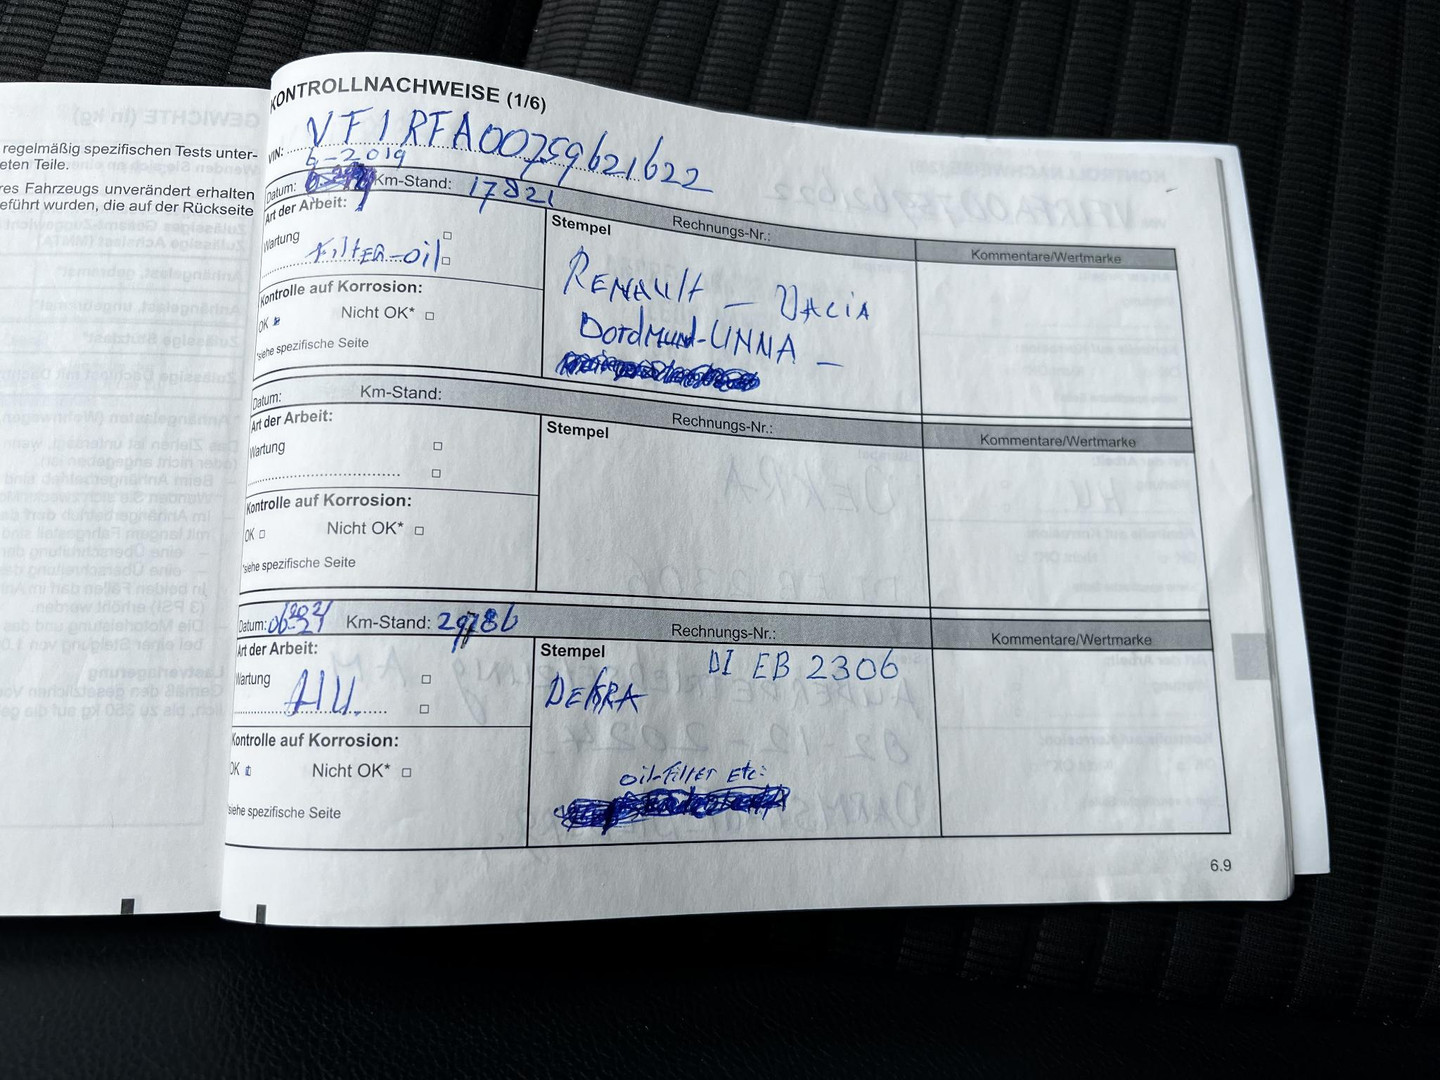 regelmäßig spezifischen Tests unter-
eten Teile.
res Fahrzeugs unverändert erhalten
eführt wurden, die auf der Rückseite
KONTROLLNACHWEISE (1/6)
VIN: VF1RFA00759621622
6-2019
Datum: Km-Stand: 17821
Art der Arbeit:
Rechnungs-Nr.:
Stempel
Kommentare/Wertmarke
Wartung
FiltER-oil
RENAULT - DACIA
Kontrolle auf Korrosion:
DORTMUND-UNNA -
OK Nicht OK*
*siehe spezifische Seite
Datum: Km-Stand:
Art der Arbeit:
Rechnungs-Nr.:
Stempel
Kommentare/Wertmarke
Wartung
Kontrolle auf Korrosion:
OK Nicht OK*
*siehe spezifische Seite
Datum: Km-Stand:
Rechnungs-Nr.:
Kommentare/Wertmarke
Art der Arbeit:
Stempel
DI EB 2306
Wartung
HU.
DEKRA
Kontrolle auf Korrosion:
OK Nicht OK*
oil-filter Etc:
siehe spezifische Seite
6.9